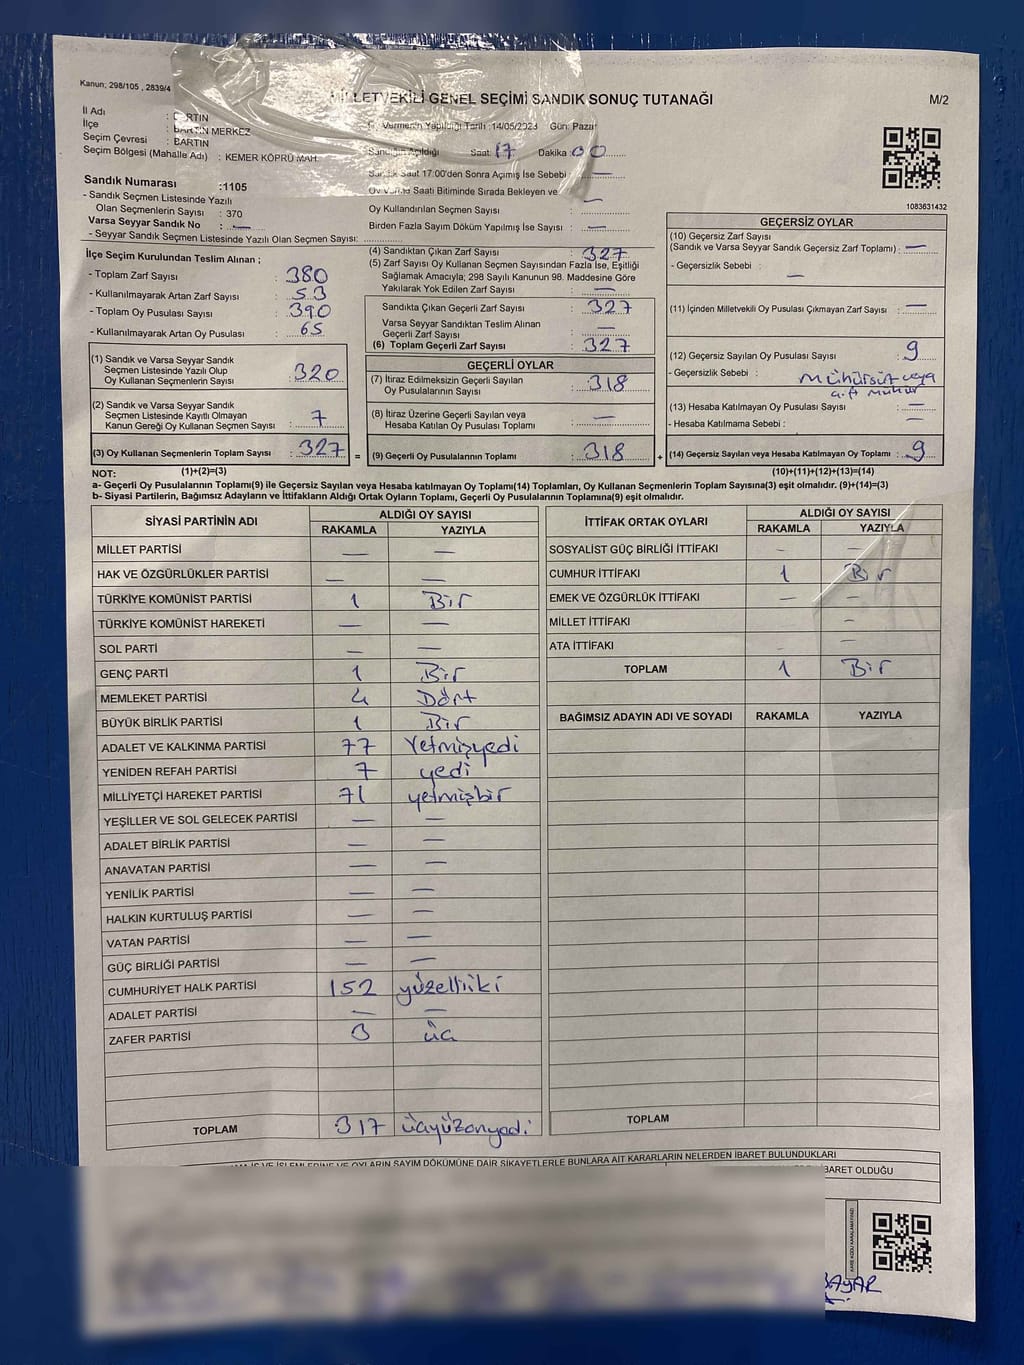 Kanun; 298/105 , 2839/4
MİLLETVEKİLİ GENEL SEÇİMİ SANDIK SONUÇ TUTANAĞI
M/2
İl Adı : BARTIN
İlçe : BARTIN MERKEZ
Seçim Çevresi : BARTIN
Seçim Bölgesi (Mahalle Adı) : KEMER KÖPRÜ MAH.
Oy Vermenin Yapıldığı Tarih :14/05/2023 Gün: Pazar
Sandığın Açıldığı Saat 17 Dakika :00
Sandık Saat 17:00'den Sonra Açımış İse Sebebi : —
Oy Verme Saati Bitiminde Sırada Bekleyen ve
Oy Kullandırılan Seçmen Sayısı : —
Birden Fazla Sayım Döküm Yapılmış İse Sayısı : —
1083631432
Sandık Numarası :1105
- Sandık Seçmen Listesinde Yazılı
Olan Seçmenlerin Sayısı : 370
Varsa Seyyar Sandık No : —
- Seyyar Sandık Seçmen Listesinde Yazılı Olan Seçmen Sayısı:
İlçe Seçim Kurulundan Teslim Alınan ;
- Toplam Zarf Sayısı : 380
- Kullanılmayarak Artan Zarf Sayısı : 53
- Toplam Oy Pusulası Sayısı : 390
- Kullanılmayarak Artan Oy Pusulası : 65
(1) Sandık ve Varsa Seyyar Sandık
Seçmen Listesinde Yazılı Olup
Oy Kullanan Seçmenlerin Sayısı : 320
(2) Sandık ve Varsa Seyyar Sandık
Seçmen Listesinde Kayıtlı Olmayan
Kanun Gereği Oy Kullanan Seçmen Sayısı : 7
(3) Oy Kullanan Seçmenlerin Toplam Sayısı : 327 =
(4) Sandıktan Çıkan Zarf Sayısı : 327
(5) Zarf Sayısı Oy Kullanan Seçmen Sayısından Fazla İse, Eşitliği
Sağlamak Amacıyla; 298 Sayılı Kanunun 98. Maddesine Göre
Yakılarak Yok Edilen Zarf Sayısı : —
Sandıkta Çıkan Geçerli Zarf Sayısı : 327
Varsa Seyyar Sandıktan Teslim Alınan
Geçerli Zarf Sayısı : —
(6) Toplam Geçerli Zarf Sayısı : 327
GEÇERLİ OYLAR
(7) İtiraz Edilmeksizin Geçerli Sayılan
Oy Pusulalarının Sayısı : 318
(8) İtiraz Üzerine Geçerli Sayılan veya
Hesaba Katılan Oy Pusulası Toplamı : —
(9) Geçerli Oy Pusulalarının Toplamı : 318 +
GEÇERSİZ OYLAR
(10) Geçersiz Zarf Sayısı
(Sandık ve Varsa Seyyar Sandık Geçersiz Zarf Toplamı) : —
- Geçersizlik Sebebi : —
(11) İçinden Milletvekili Oy Pusulası Çıkmayan Zarf Sayısı : —
(12) Geçersiz Sayılan Oy Pusulası Sayısı : 9
- Geçersizlik Sebebi : mühürsüz veya
çift mühür
(13) Hesaba Katılmayan Oy Pusulası Sayısı : —
- Hesaba Katılmama Sebebi : —
(14) Geçersiz Sayılan veya Hesaba Katılmayan Oy Toplamı : 9
NOT: (1)+(2)=(3) (10)+(11)+(12)+(13)=(14)
a- Geçerli Oy Pusulalarının Toplamı(9) ile Geçersiz Sayılan veya Hesaba katılmayan Oy Toplamı(14) Toplamları, Oy Kullanan Seçmenlerin Toplam Sayısına(3) eşit olmalıdır. (9)+(14)=(3)
b- Siyasi Partilerin, Bağımsız Adayların ve İttifakların Aldığı Ortak Oyların Toplamı, Geçerli Oy Pusulalarının Toplamına(9) eşit olmalıdır.
SİYASİ PARTİNİN ADI ALDIĞI OY SAYISI
RAKAMLA YAZIYLA
MİLLET PARTİSİ — —
HAK VE ÖZGÜRLÜKLER PARTİSİ — —
TÜRKİYE KOMÜNİST PARTİSİ 1 Bir
TÜRKİYE KOMÜNİST HAREKETİ — —
SOL PARTİ — —
GENÇ PARTİ 1 Bir
MEMLEKET PARTİSİ 4 Dört
BÜYÜK BİRLİK PARTİSİ 1 Bir
ADALET VE KALKINMA PARTİSİ 77 Yetmişyedi
YENİDEN REFAH PARTİSİ 7 yedi
MİLLİYETÇİ HAREKET PARTİSİ 71 yetmişbir
YEŞİLLER VE SOL GELECEK PARTİSİ — —
ADALET BİRLİK PARTİSİ — —
ANAVATAN PARTİSİ — —
YENİLİK PARTİSİ — —
HALKIN KURTULUŞ PARTİSİ — —
VATAN PARTİSİ — —
GÜÇ BİRLİĞİ PARTİSİ — —
CUMHURİYET HALK PARTİSİ 152 yüzelliiki
ADALET PARTİSİ — —
ZAFER PARTİSİ 3 üç
TOPLAM 317 üçyüzonyedi
İTTİFAK ORTAK OYLARI ALDIĞI OY SAYISI
RAKAMLA YAZIYLA
SOSYALİST GÜÇ BİRLİĞİ İTTİFAKI — —
CUMHUR İTTİFAKI 1 Bir
EMEK VE ÖZGÜRLÜK İTTİFAKI — —
MİLLET İTTİFAKI —
ATA İTTİFAKI — —
TOPLAM 1 Bir
BAĞIMSIZ ADAYIN ADI VE SOYADI RAKAMLA YAZIYLA
TOPLAM
VE İŞLEMLERİNE VE OYLARIN SAYIM DÖKÜMÜNE DAİR ŞİKAYETLERLE BUNLARA AİT KARARLARIN NELERDEN İBARET BULUNDUKLARI
İBARET OLDUĞU